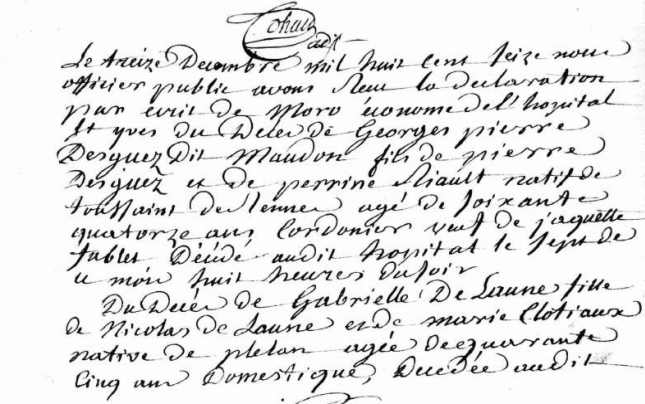 Cohan
adjt
Le treize Decembre mil huit cent seize nous
officier public avons Reçu la declaration
par ecrit de Moro économe de l'hopital
St yves du Deces de Georges pierre
Desguez Dit Maudon fils de pierre
Desguez et de perrine Riault natif de
toussaint de Rennes agé de soixante
quatorze ans Cordonier veuf de jaquette
tablet Décédé audit hopital le sept de
ce mois huit heures du soir
Du Deces de Gabrielle De Laune fille
de Nicolas de Laune et de marie Clotiaux
native de plelan agée de quarante
Cinq ans Domestique, Decedée audit